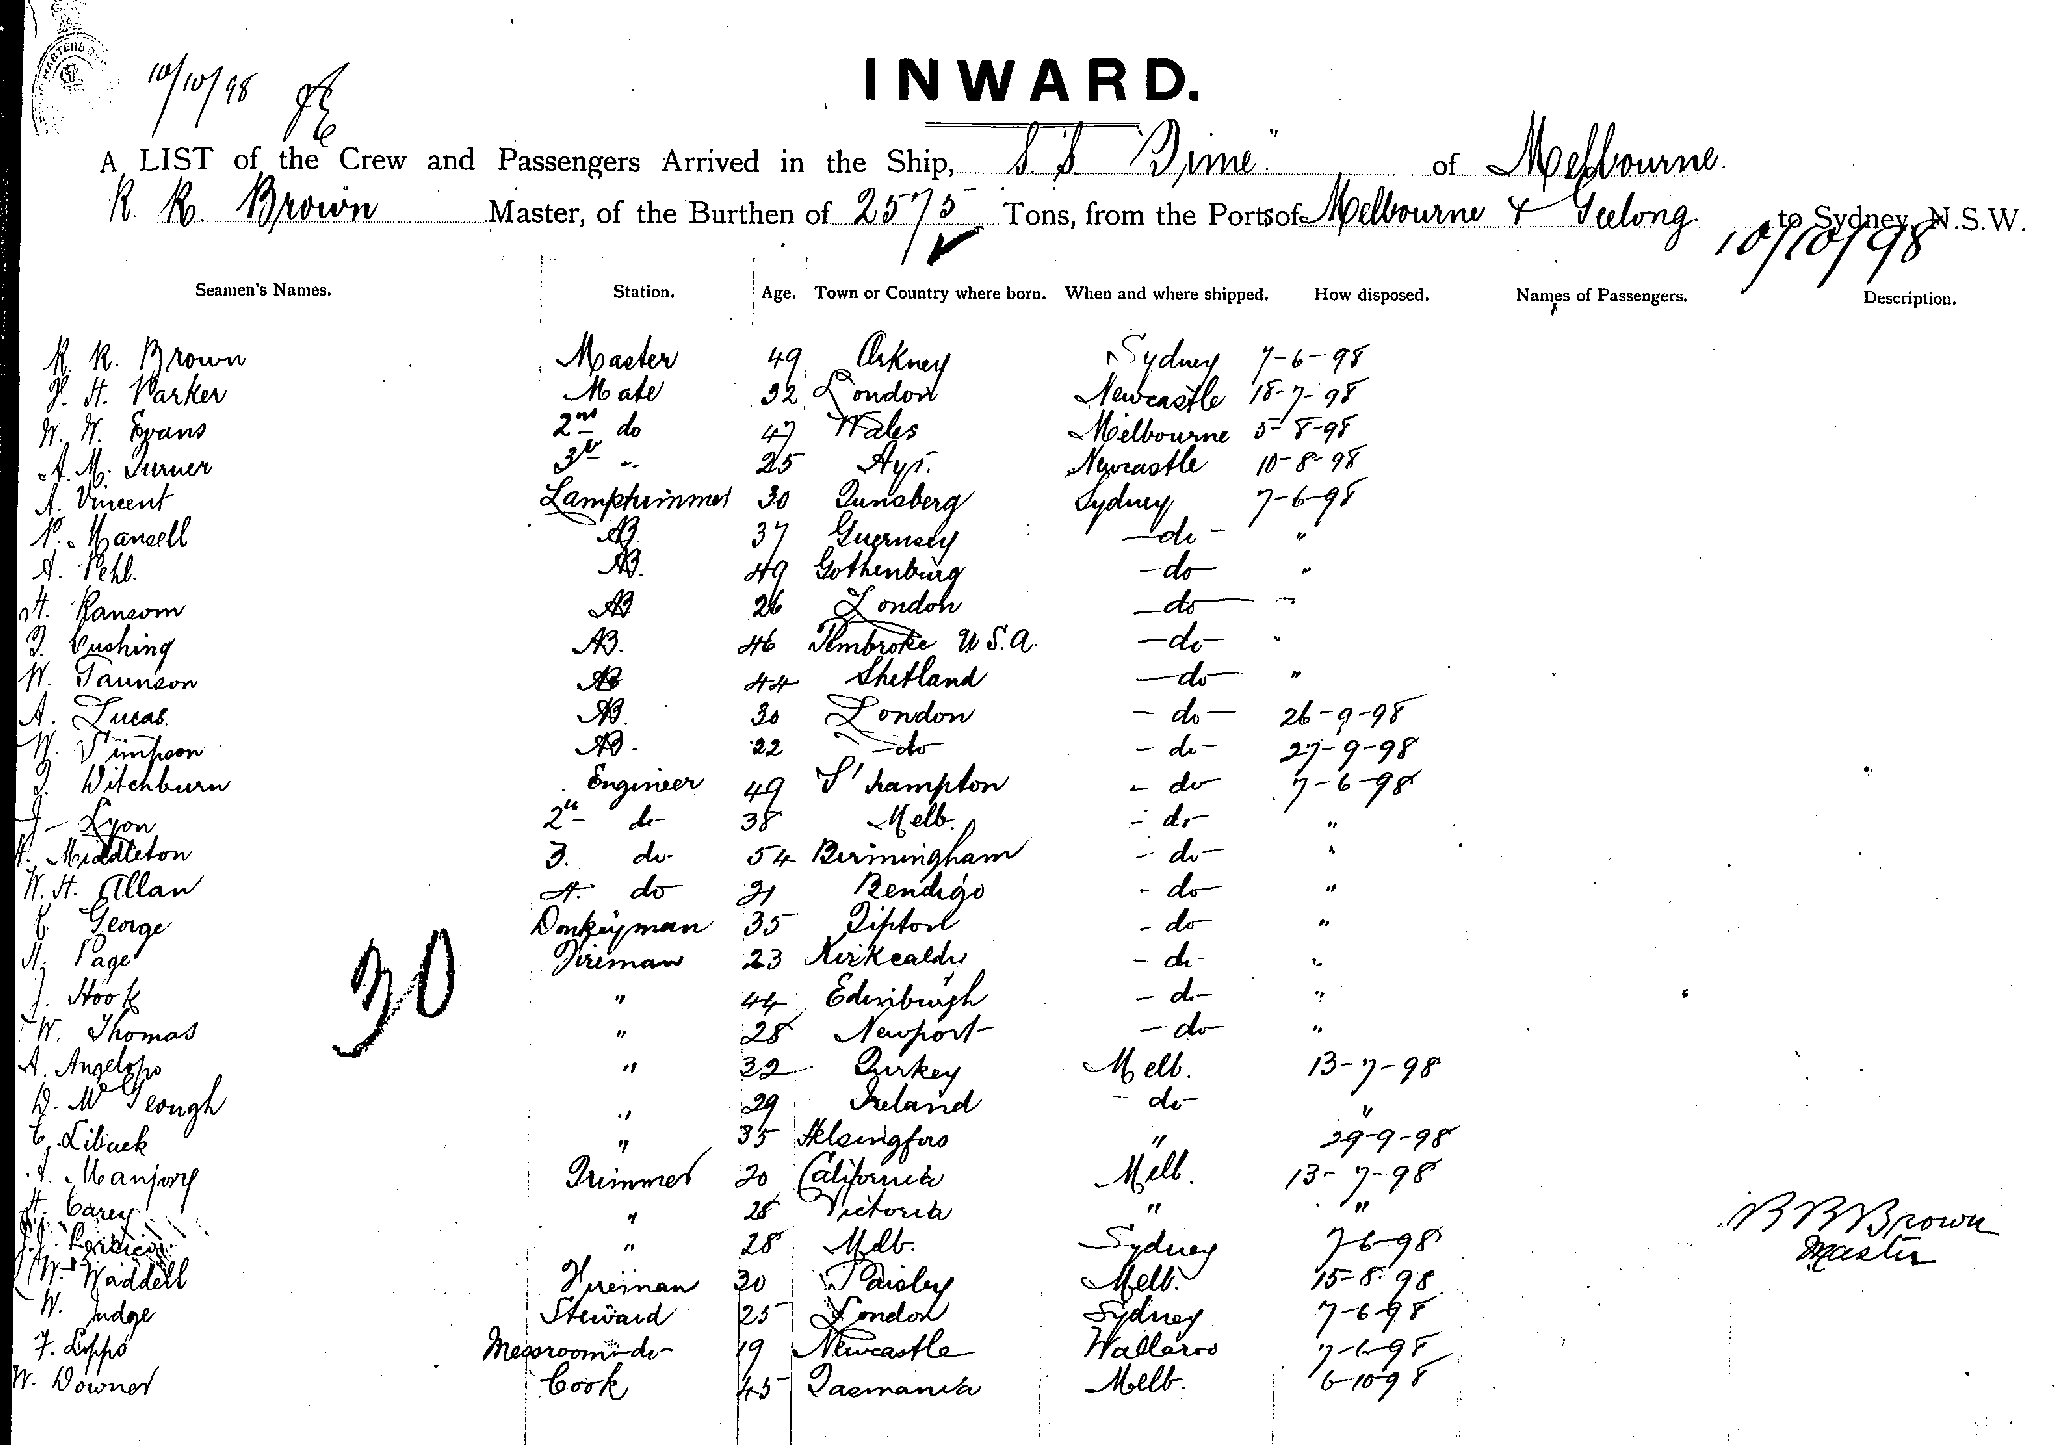 10/10/98
INWARD.
A LIST of the Crew and Passengers Arrived in the Ship, S.S "Time" of Melbourne.
R. R. Brown Master, of the Burthen of 2575 Tons, from the Ports of Melbourne & Geelong to Sydney, N.S.W.
10/10/98
Seamen's Names. Station. Age. Town or Country where born. When and where shipped. How disposed. Names of Passengers. Description.
R. R. Brown Master 49 Orkney Sydney 7-6-98
H. Parker Mate 32 London Newcastle 18-7-98
W. W. Evans 2nd do 47 Wales Melbourne 5-8-98
A. M. Turner 3rd " 25 Ayr. Newcastle 10-8-98
A. Vincent Lamptrimmer 30 Tunsberg Sydney 7-6-98
Mansell AB 37 Guernsey -do- "
A. Pehl. AB. 49 Gothenburg -do- "
H. Ransom AB 26 London -do- "
T. Cushing AB. 46 Pembroke U.S.A. -do- "
W. Taunson AB 44 Shetland -do- "
A. Lucas. AB. 30 London -do- 26-9-98
W. Simpson AB. 22 -do -do- 27-9-98
T. Witchburn Engineer 49 S'hampton - do 7-6-98
J. Lyon 2nd do 38 Melb. - do- "
Middleton 3. do- 54 Birmingham - do- "
W. H. Allan 4. do 21 Bendigo - do- "
C. George Donkeyman 35 Tipton - do- "
Page Fireman 23 Kirkcaldy - do- "
J. Hook " 44 Edinburgh - do- "
W. Thomas " 28 Newport - do- "
A. Angelopo " 32 Turkey Melb. 13-7-98
D. McGeough " 29 Ireland - do- "
C. Liback " 35 Helsingfors " 29-9-98
A. Trimmer 20 California Melb. 13-7-98
H. Carey " 28 Victoria " "
" 28 Melb. Sydney 7-6-98
W. Waddell Fireman 30 Paisley Melb. 15-8-98
W. Judge Steward 25 London Sydney 7-6-98
F. Messroom-do- 19 Newcastle Wallaroo 7-6-98
W. Downer Cook 45 Tasmania Melb. 6-10-98
30
R R Brown
Master